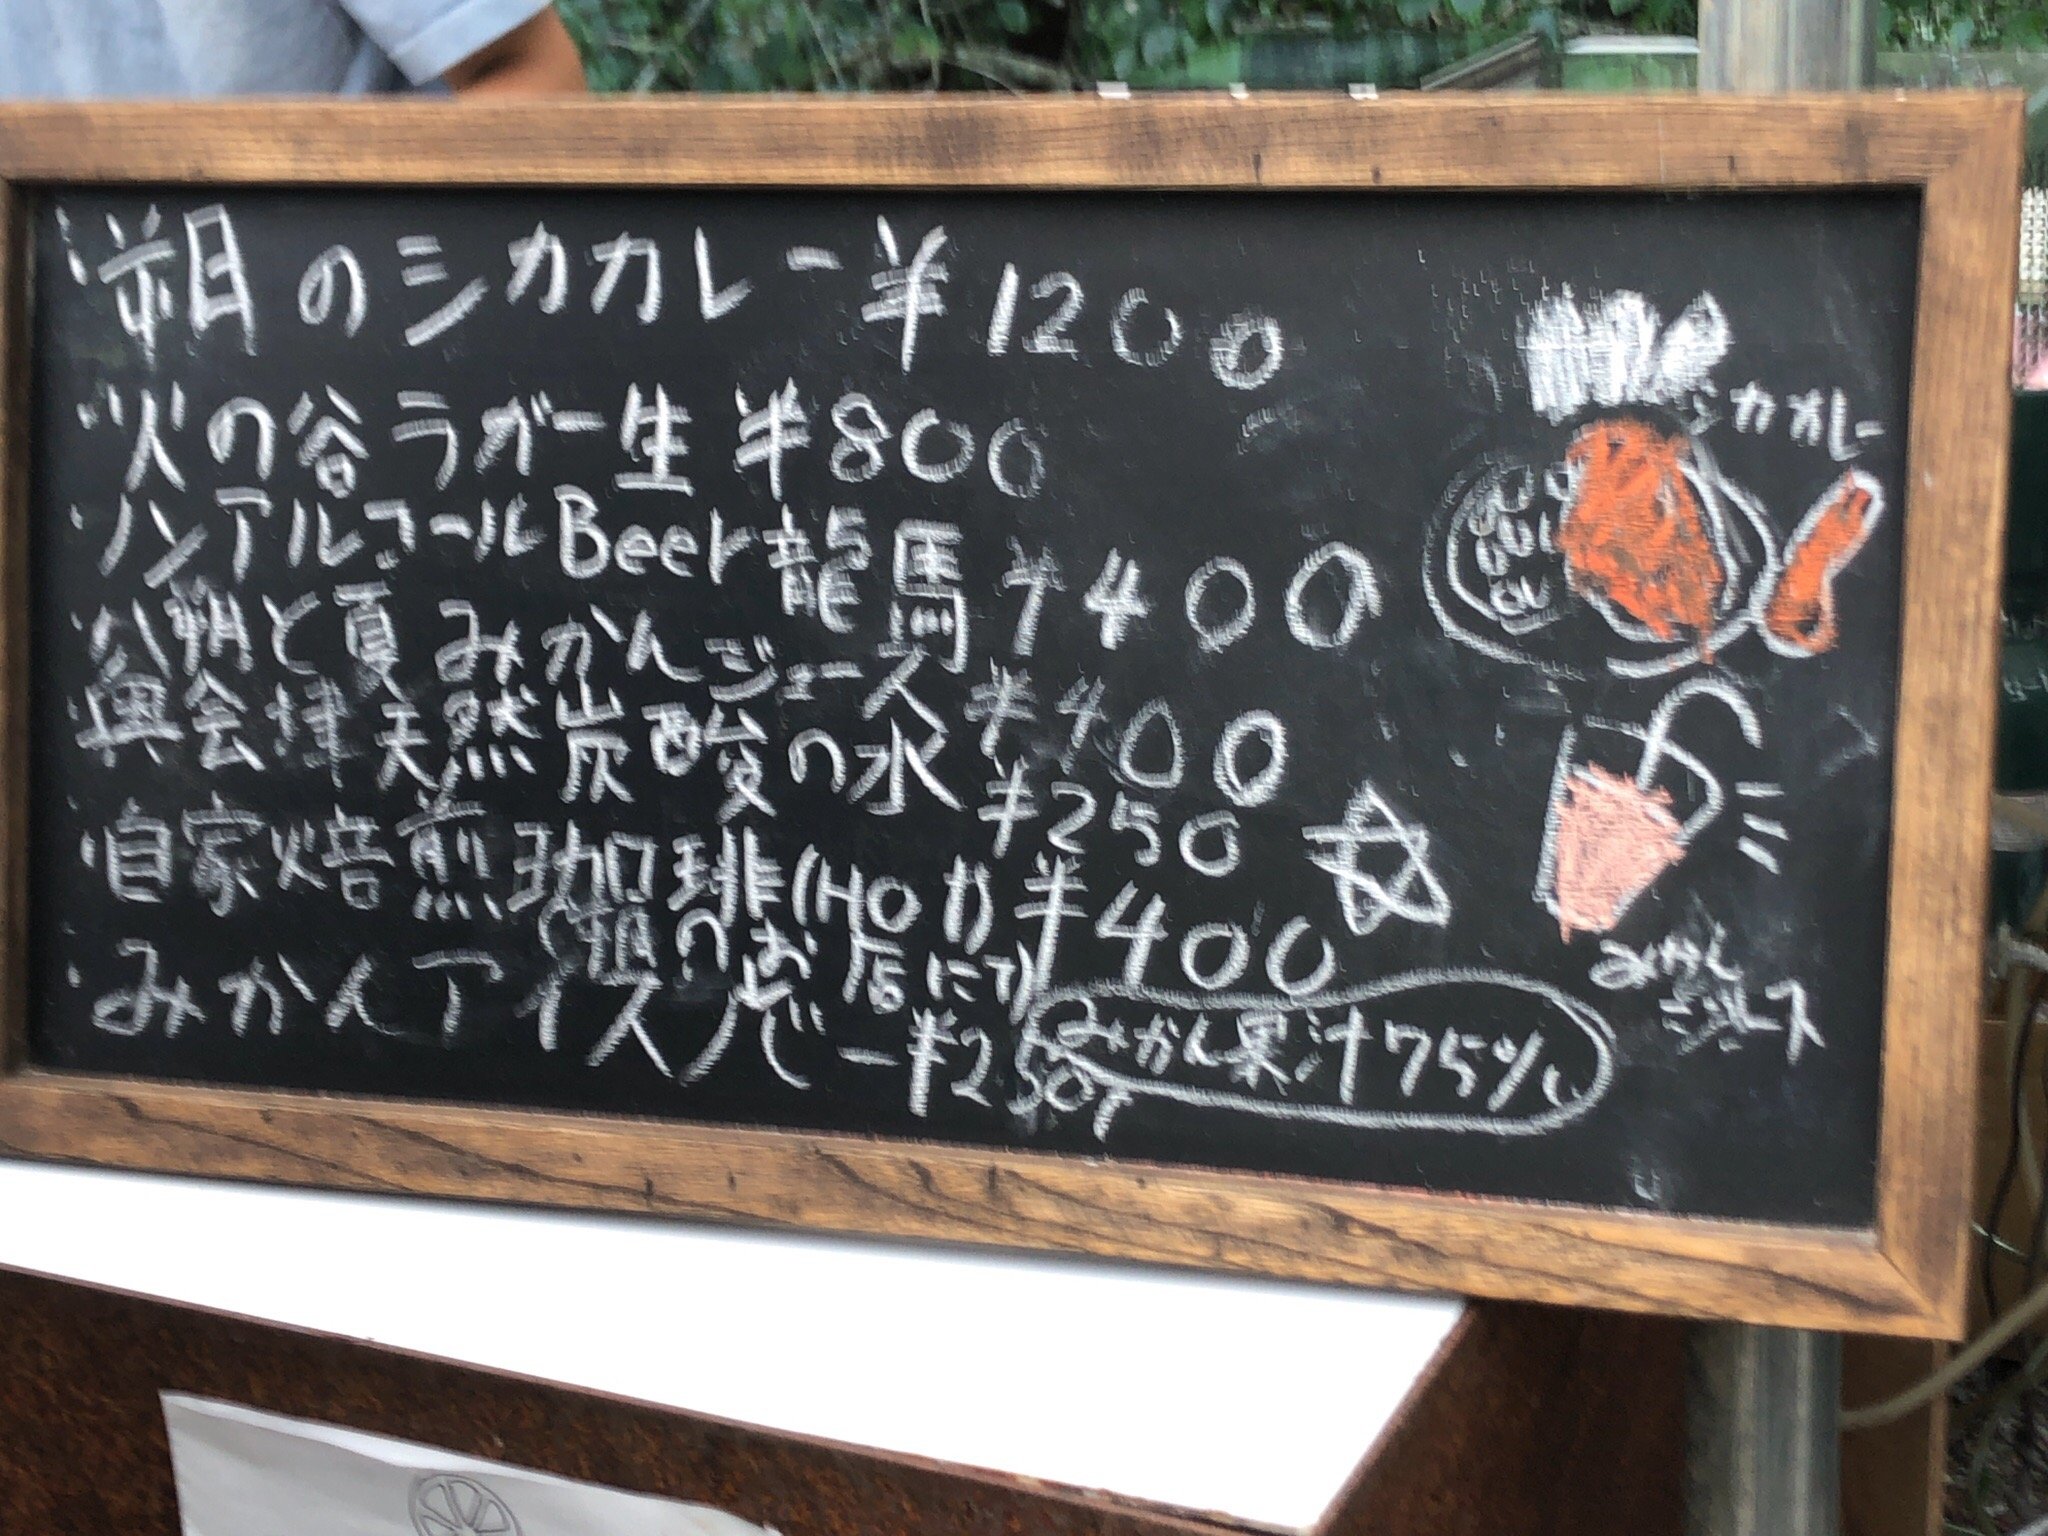 ・朔のシカカレー ¥1200
・火の谷ラガー生 ¥800
・ノンアルコールBeer 龍馬 ¥400
・朔と夏みかんジュース ¥400
・奥会津天然炭酸の水 ¥250
・自家焙煎珈琲(HOT) ¥400
のお店にて)
・みかんアイスバー ¥250
みかん果汁75%
シカカレー
みかんジュース